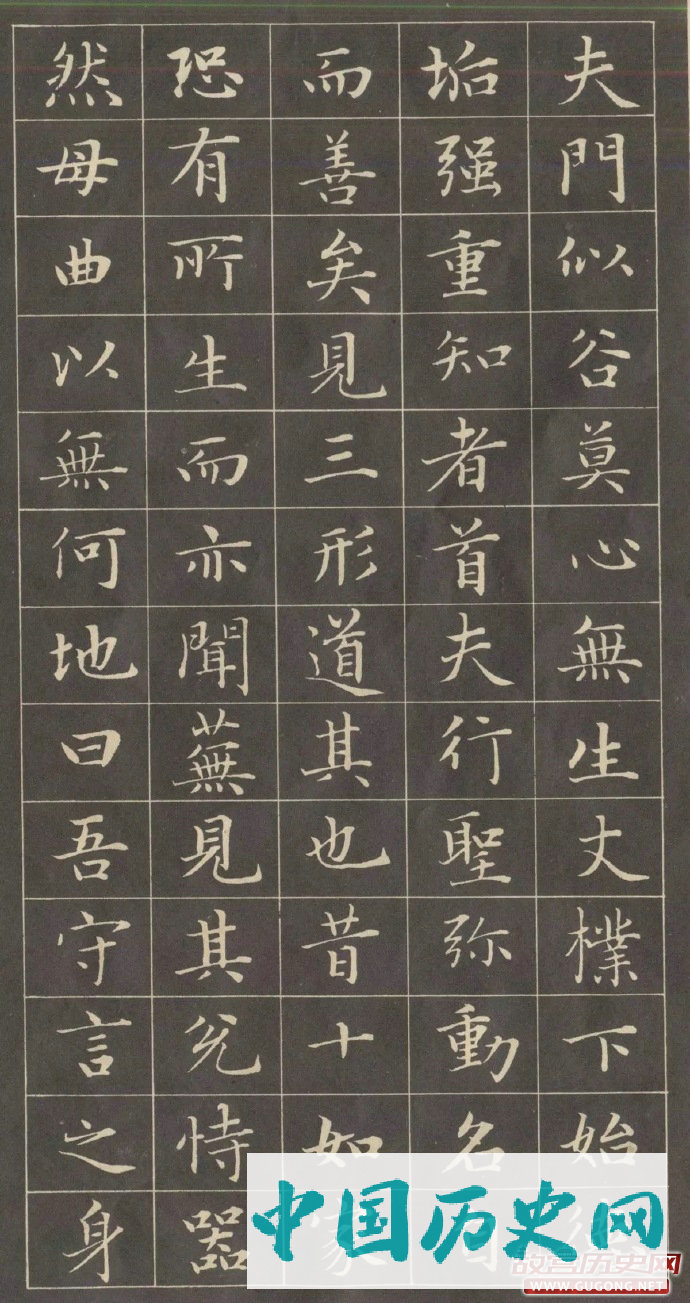 夫門似谷莫心無生丈樸下始
垢强重知者首夫行聖弥動名
而善矣見三形道其也昔十如家
恐有所生而亦聞蕪見其兊恃器
然母曲以無何地曰吾守言之身
中国历史网
故宫历史网
WWW.GUGONG.NET